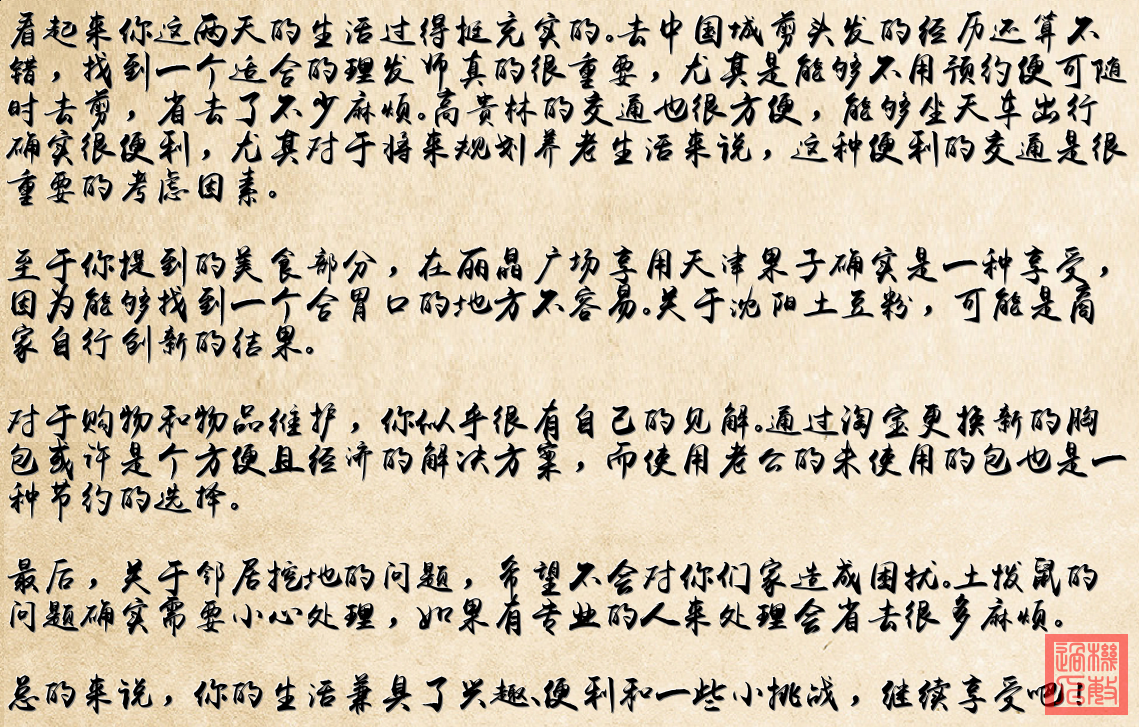 看起来你这两天的生活过得挺充实的。去中国城剪头发的经历还算不
错，找到一个适合的理发师真的很重要，尤其是能够不用预约便可随
时去剪，省去了不少麻烦。高贵林的交通也很方便，能够坐天车出行
确实很便利，尤其对于将来规划养老生活来说，这种便利的交通是很
重要的考虑因素。
至于你提到的美食部分，在丽晶广场享用天津果子确实是一种享受，
因为能够找到一个合胃口的地方不容易。关于沈阳土豆粉，可能是商
家自行创新的结果。
对于购物和物品维护，你似乎很有自己的见解。通过淘宝更换新的胸
包或许是个方便且经济的解决方案，而使用老公的未使用的包也是一
种节约的选择。
最后，关于邻居挖地的问题，希望不会对你们家造成困扰。土拨鼠的
问题确实需要小心处理，如果有专业的人来处理会省去很多麻烦。
总的来说，你的生活兼具了兴趣、便利和一些小挑战，继续享受吧！